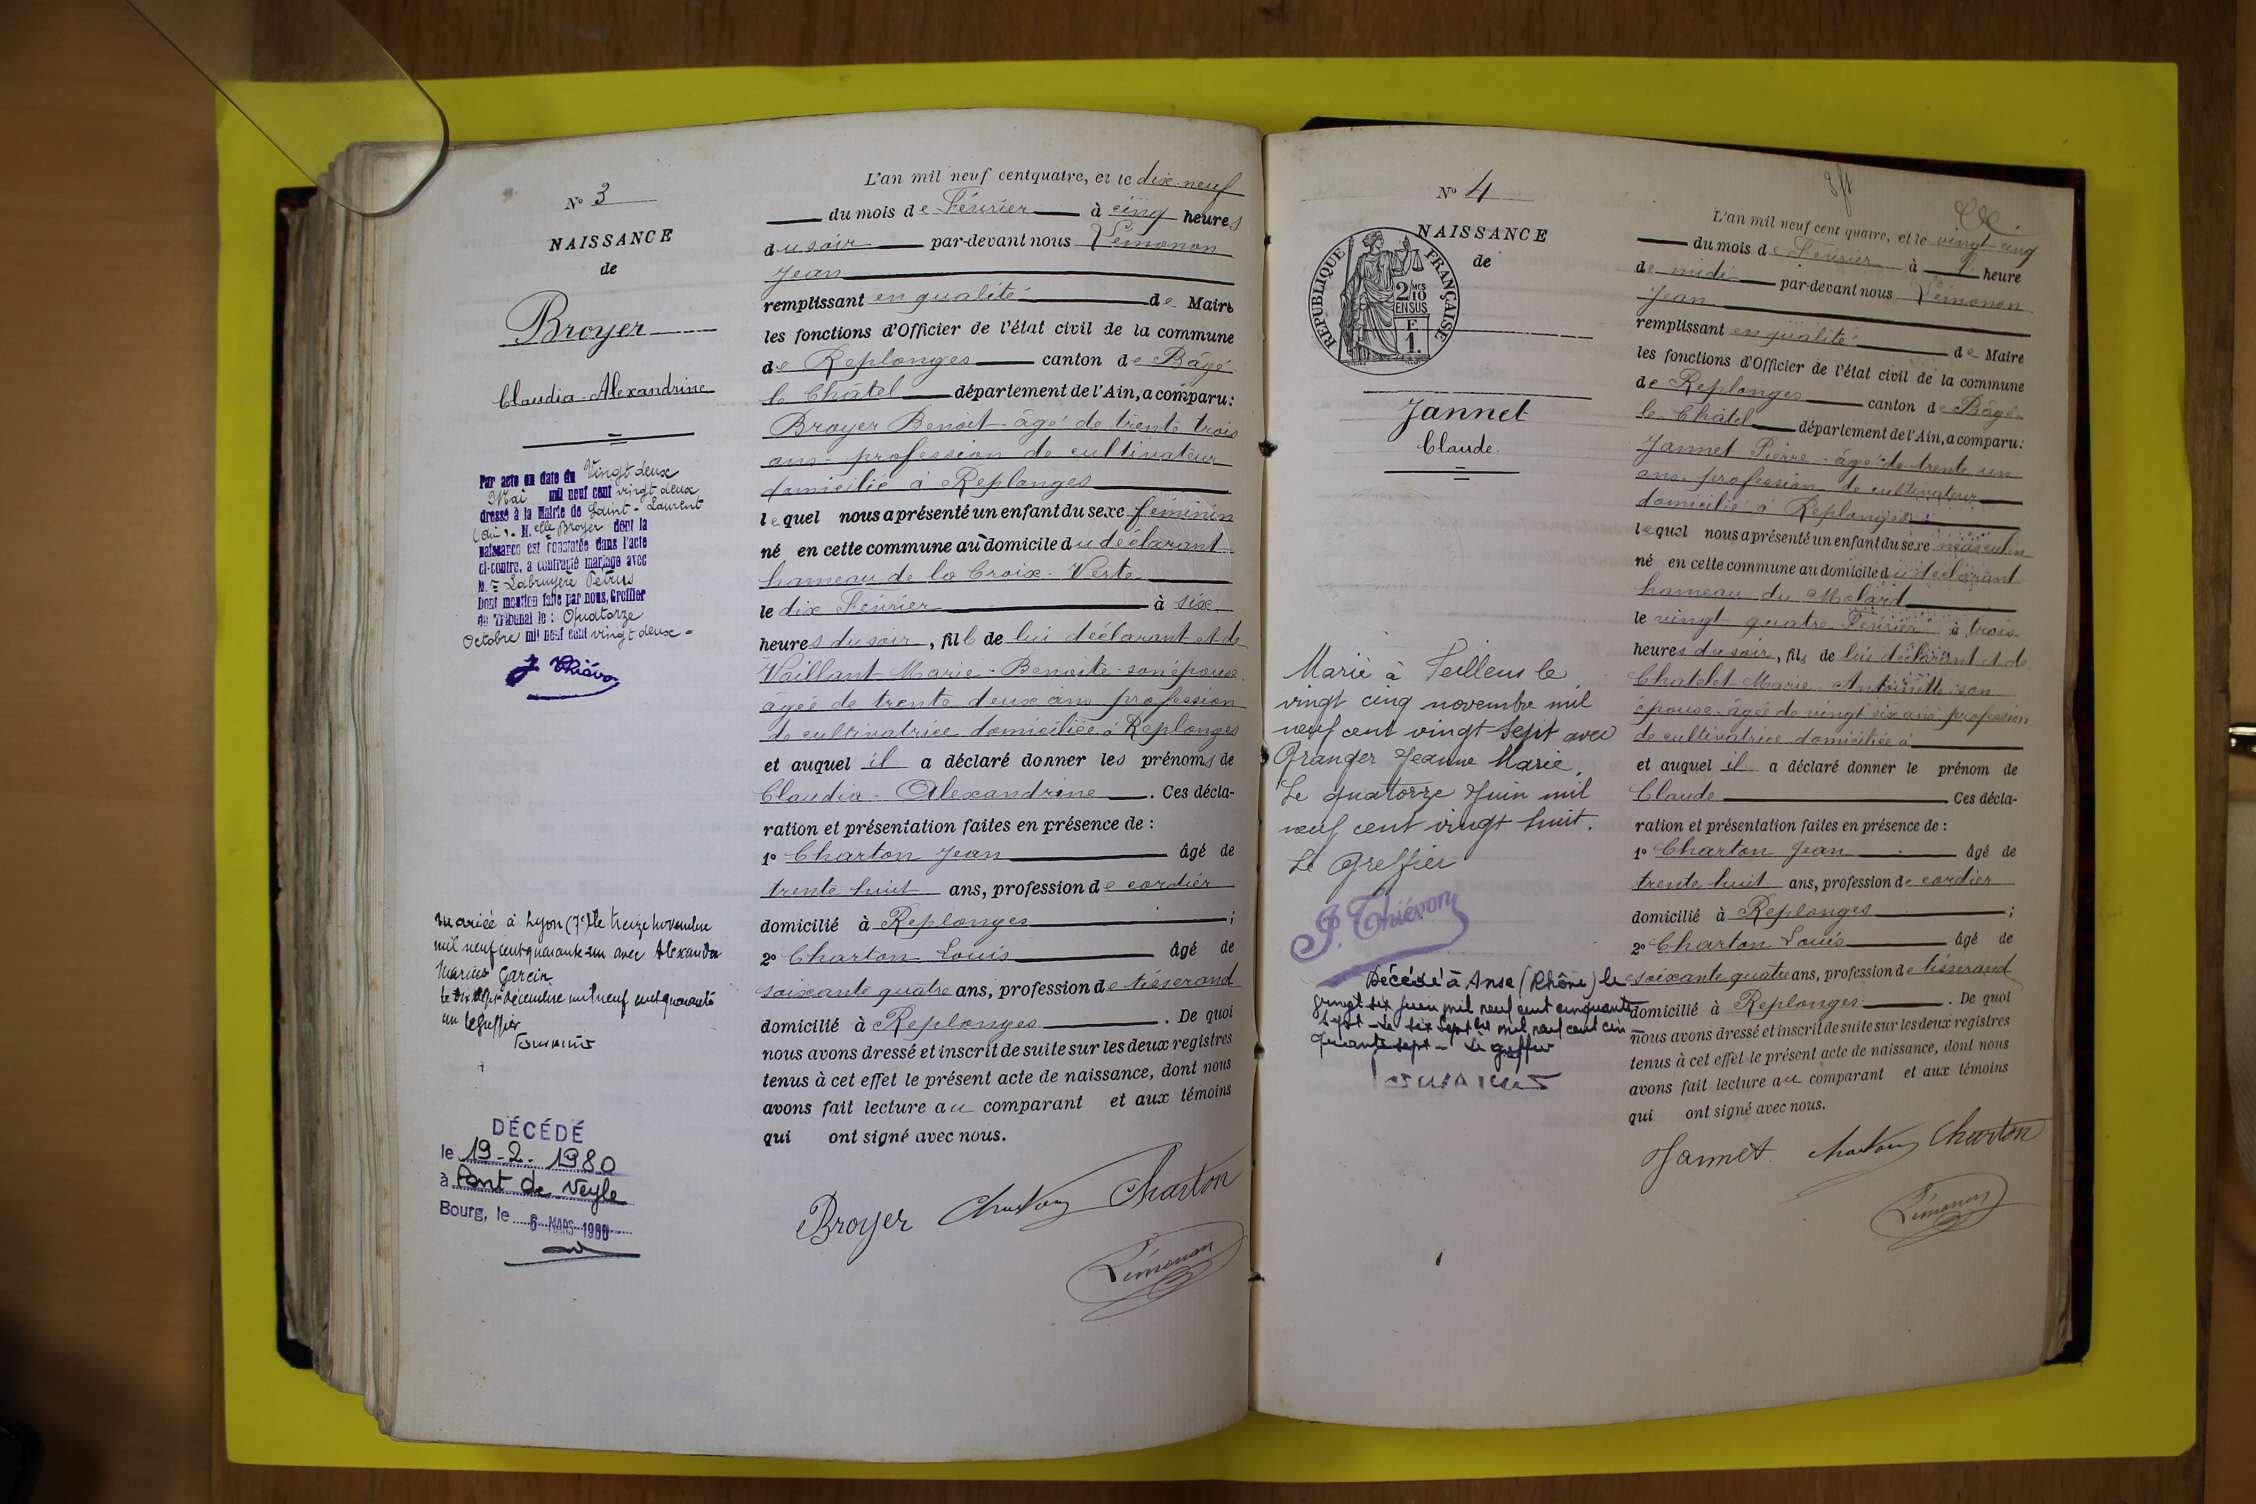 N° 3
NAISSANCE
de
Broyer
Claudia-Alexandrine
Par acte en date du Vingt deux
Mai mil neuf cent vingt deux
dressé à la Mairie de Saint-Laurent
(Ain). M.elle Broyer dont la
naissance est constatée dans l'acte
ci-contre, a contracté mariage avec
M.= Labruyère Pétrus
Dont mention faite par nous, Greffier
du Tribunal le : Quatorze
Octobre mil neuf cent vingt deux =
J. Thiévon
mariée à Lyon (7e) le treize novembre
mil neuf cent quarante-un avec Alexandre
Marius Garcin
le dix sept décembre mil neuf cent quarante
un le Greffier
DÉCÉDÉ
le 19-2-1980
à Pont de Veyle
Bourg, le 6 MARS 1980
L'an mil neuf cent quatre, et le dix-neuf
du mois de Février à cinq heures
du soir par-devant nous Lémonon
Jean
remplissant en qualité de Maire
les fonctions d'Officier de l'état civil de la commune
de Replonges canton de Bâgé
le Châtel département de l'Ain, a comparu :
Broyer Benoit - âgé de trente trois
ans - profession de cultivateur
domicilié à Replonges
lequel nous a présenté un enfant du sexe féminin
né en cette commune au domicile du déclarant
hameau de la Croix-Verte
le dix Février à six
heures du soir, fille de lui déclarant et de
Vaillant Marie-Benoite - son épouse
âgée de trente deux ans profession
de cultivatrice domiciliée à Replonges
et auquel il a déclaré donner les prénoms de
Claudia-Alexandrine. Ces décla-
ration et présentation faites en présence de :
1° Charton Jean âgé de
trente huit ans, profession de cordier
domicilié à Replonges ;
2° Charton Louis âgé de
soixante quatre ans, profession de tisserand
domicilié à Replonges. De quoi
nous avons dressé et inscrit de suite sur les deux registres
tenus à cet effet le présent acte de naissance, dont nous
avons fait lecture au comparant et aux témoins
qui ont signé avec nous.
Broyer Charton Charton
Lémonon
N° 4
NAISSANCE
de
RÉPUBLIQUE FRANÇAISE
2/10 MES
EN SUS
F
1.
Jannet
Claude.
Marié à Feillens le
vingt cinq novembre mil
neuf cent vingt sept avec
Granger Jeanne Marie,
Le quatorze Juin mil
neuf cent vingt huit.
Le Greffier
J. Thiévon
Décédé à Anse (Rhône) le
vingt six juin mil neuf cent cinquante
sept - Le six Septbre mil neuf cent cin-
quante sept - Le greffier
L'an mil neuf cent quatre, et le vingt-cinq
du mois de Février à 1 heure
de midi par-devant nous Lémonon
Jean
remplissant en qualité de Maire
les fonctions d'Officier de l'état civil de la commune
de Replonges canton de Bâgé
le Châtel département de l'Ain, a comparu :
Jannet Pierre - âgé de trente un
ans profession de cultivateur
domicilié à Replonges
lequel nous a présenté un enfant du sexe masculin
né en cette commune au domicile du déclarant
hameau du Molard
le vingt quatre Février à trois
heures du soir, fils de lui déclarant et de
Chatelet Marie Antoinette son
épouse âgée de vingt six ans profession
de cultivatrice domiciliée à
et auquel il a déclaré donner le prénom de
Claude Ces décla-
ration et présentation faites en présence de :
1° Charton Jean âgé de
trente huit ans, profession de cordier
domicilié à Replonges ;
2° Charton Louis âgé de
soixante quatre ans, profession de tisserand
domicilié à Replonges. De quoi
nous avons dressé et inscrit de suite sur les deux registres
tenus à cet effet le présent acte de naissance, dont nous
avons fait lecture au comparant et aux témoins
qui ont signé avec nous.
Jannet Charton Charton
Lémonon